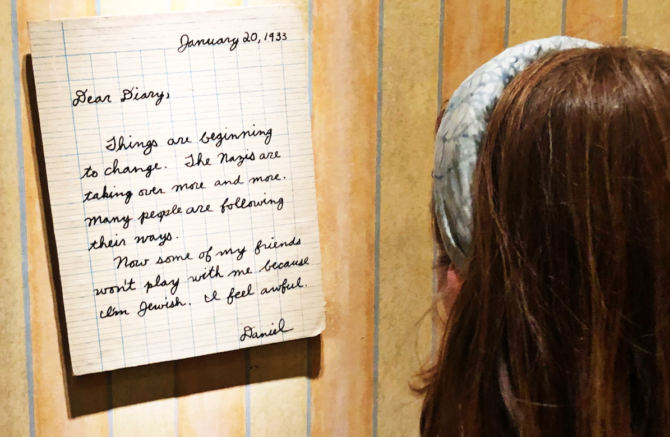 January 20, 1933
Dear Diary,
Things are beginning
to change. The Nazis are
taking over more and more.
Many people are following
their ways.
Now some of my friends
won't play with me because
I'm Jewish. I feel awful.
Daniel